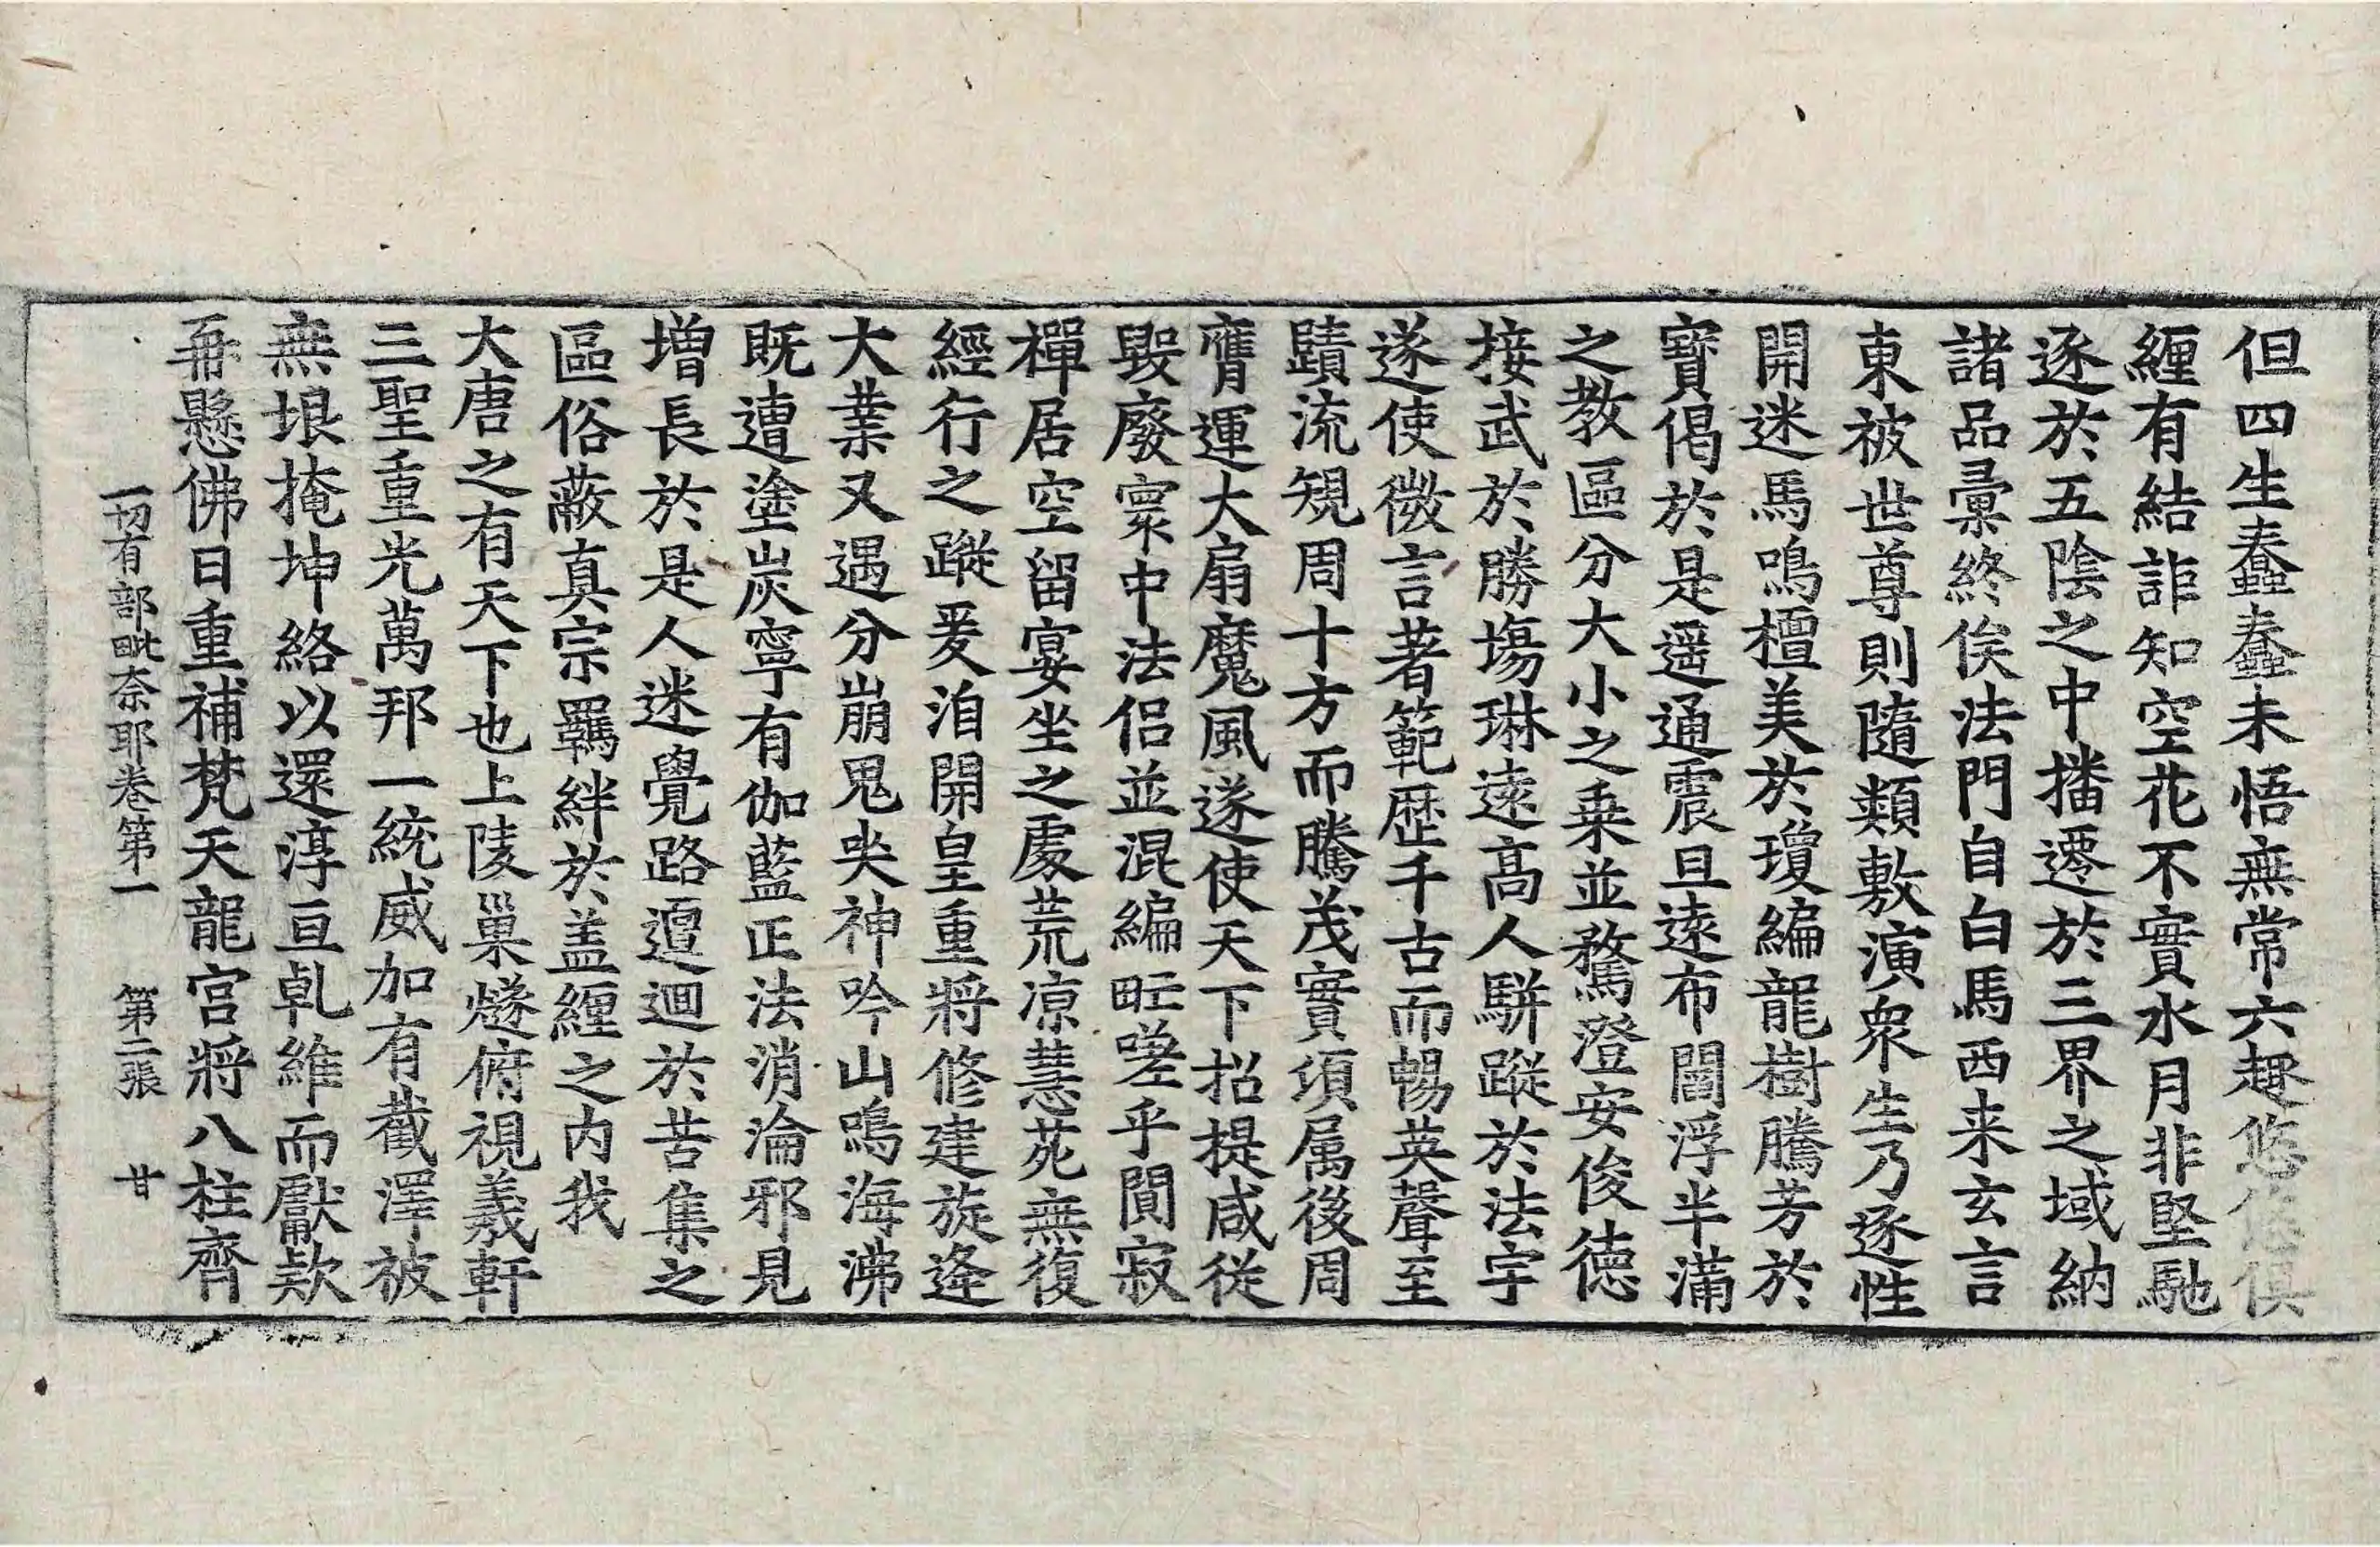 但四生蠢蠢未悟無常六趣悠悠俱
纏有結詎知空花不實水月非堅馳
逐於五陰之中播遷於三界之域納
諸品彙終俟法門自白馬西来玄言
東被世尊則隨類敷演衆生乃逐性
開迷馬鳴檀美於瓊編龍樹騰芳於
寶偈於是遥通震旦遠布閻浮半滿
之教區分大小之乗並騖澄安俊德
接武於勝塲琳遠髙人駢蹤於法宇
遂使微言著範歴千古而暢英聲至
賾流規周十方而騰茂實湏属後周
膺運大扇魔風遂使天下招提咸従
毁廢寰中法侣並混編甿嗟乎閴寂
禪居空留宴坐之處荒凉慧苑無復
經行之蹤爰洎開皇重將修建旋逢
大業又遇分崩鬼哭神吟山鳴海沸
既遭塗炭寧有伽藍正法消淪邪見
増長於是人迷覺路邅迴於苦集之
區俗蔽真宗羈絆於盖纏之内我
大唐之有天下也上陵巢燧俯視羲軒
三聖重光萬邦一統威加有截澤被
無垠掩坤絡以還淳亘乹維而獻款
再懸佛日重補梵天龍宫將八柱齊
一切有部毗奈耶卷第一 第二張 甘